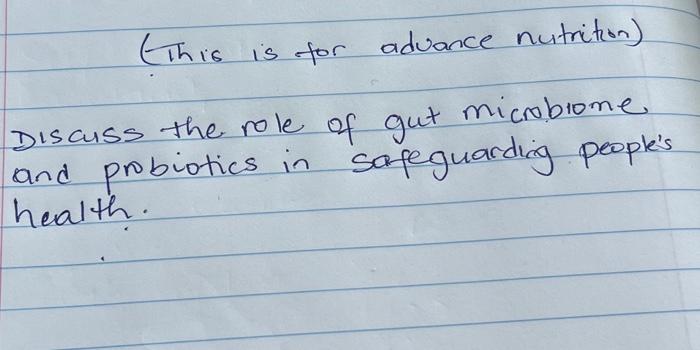 (This is for advance nutrition)
Discuss the role of gut microbiome
and probiotics in safeguarding people's
health.